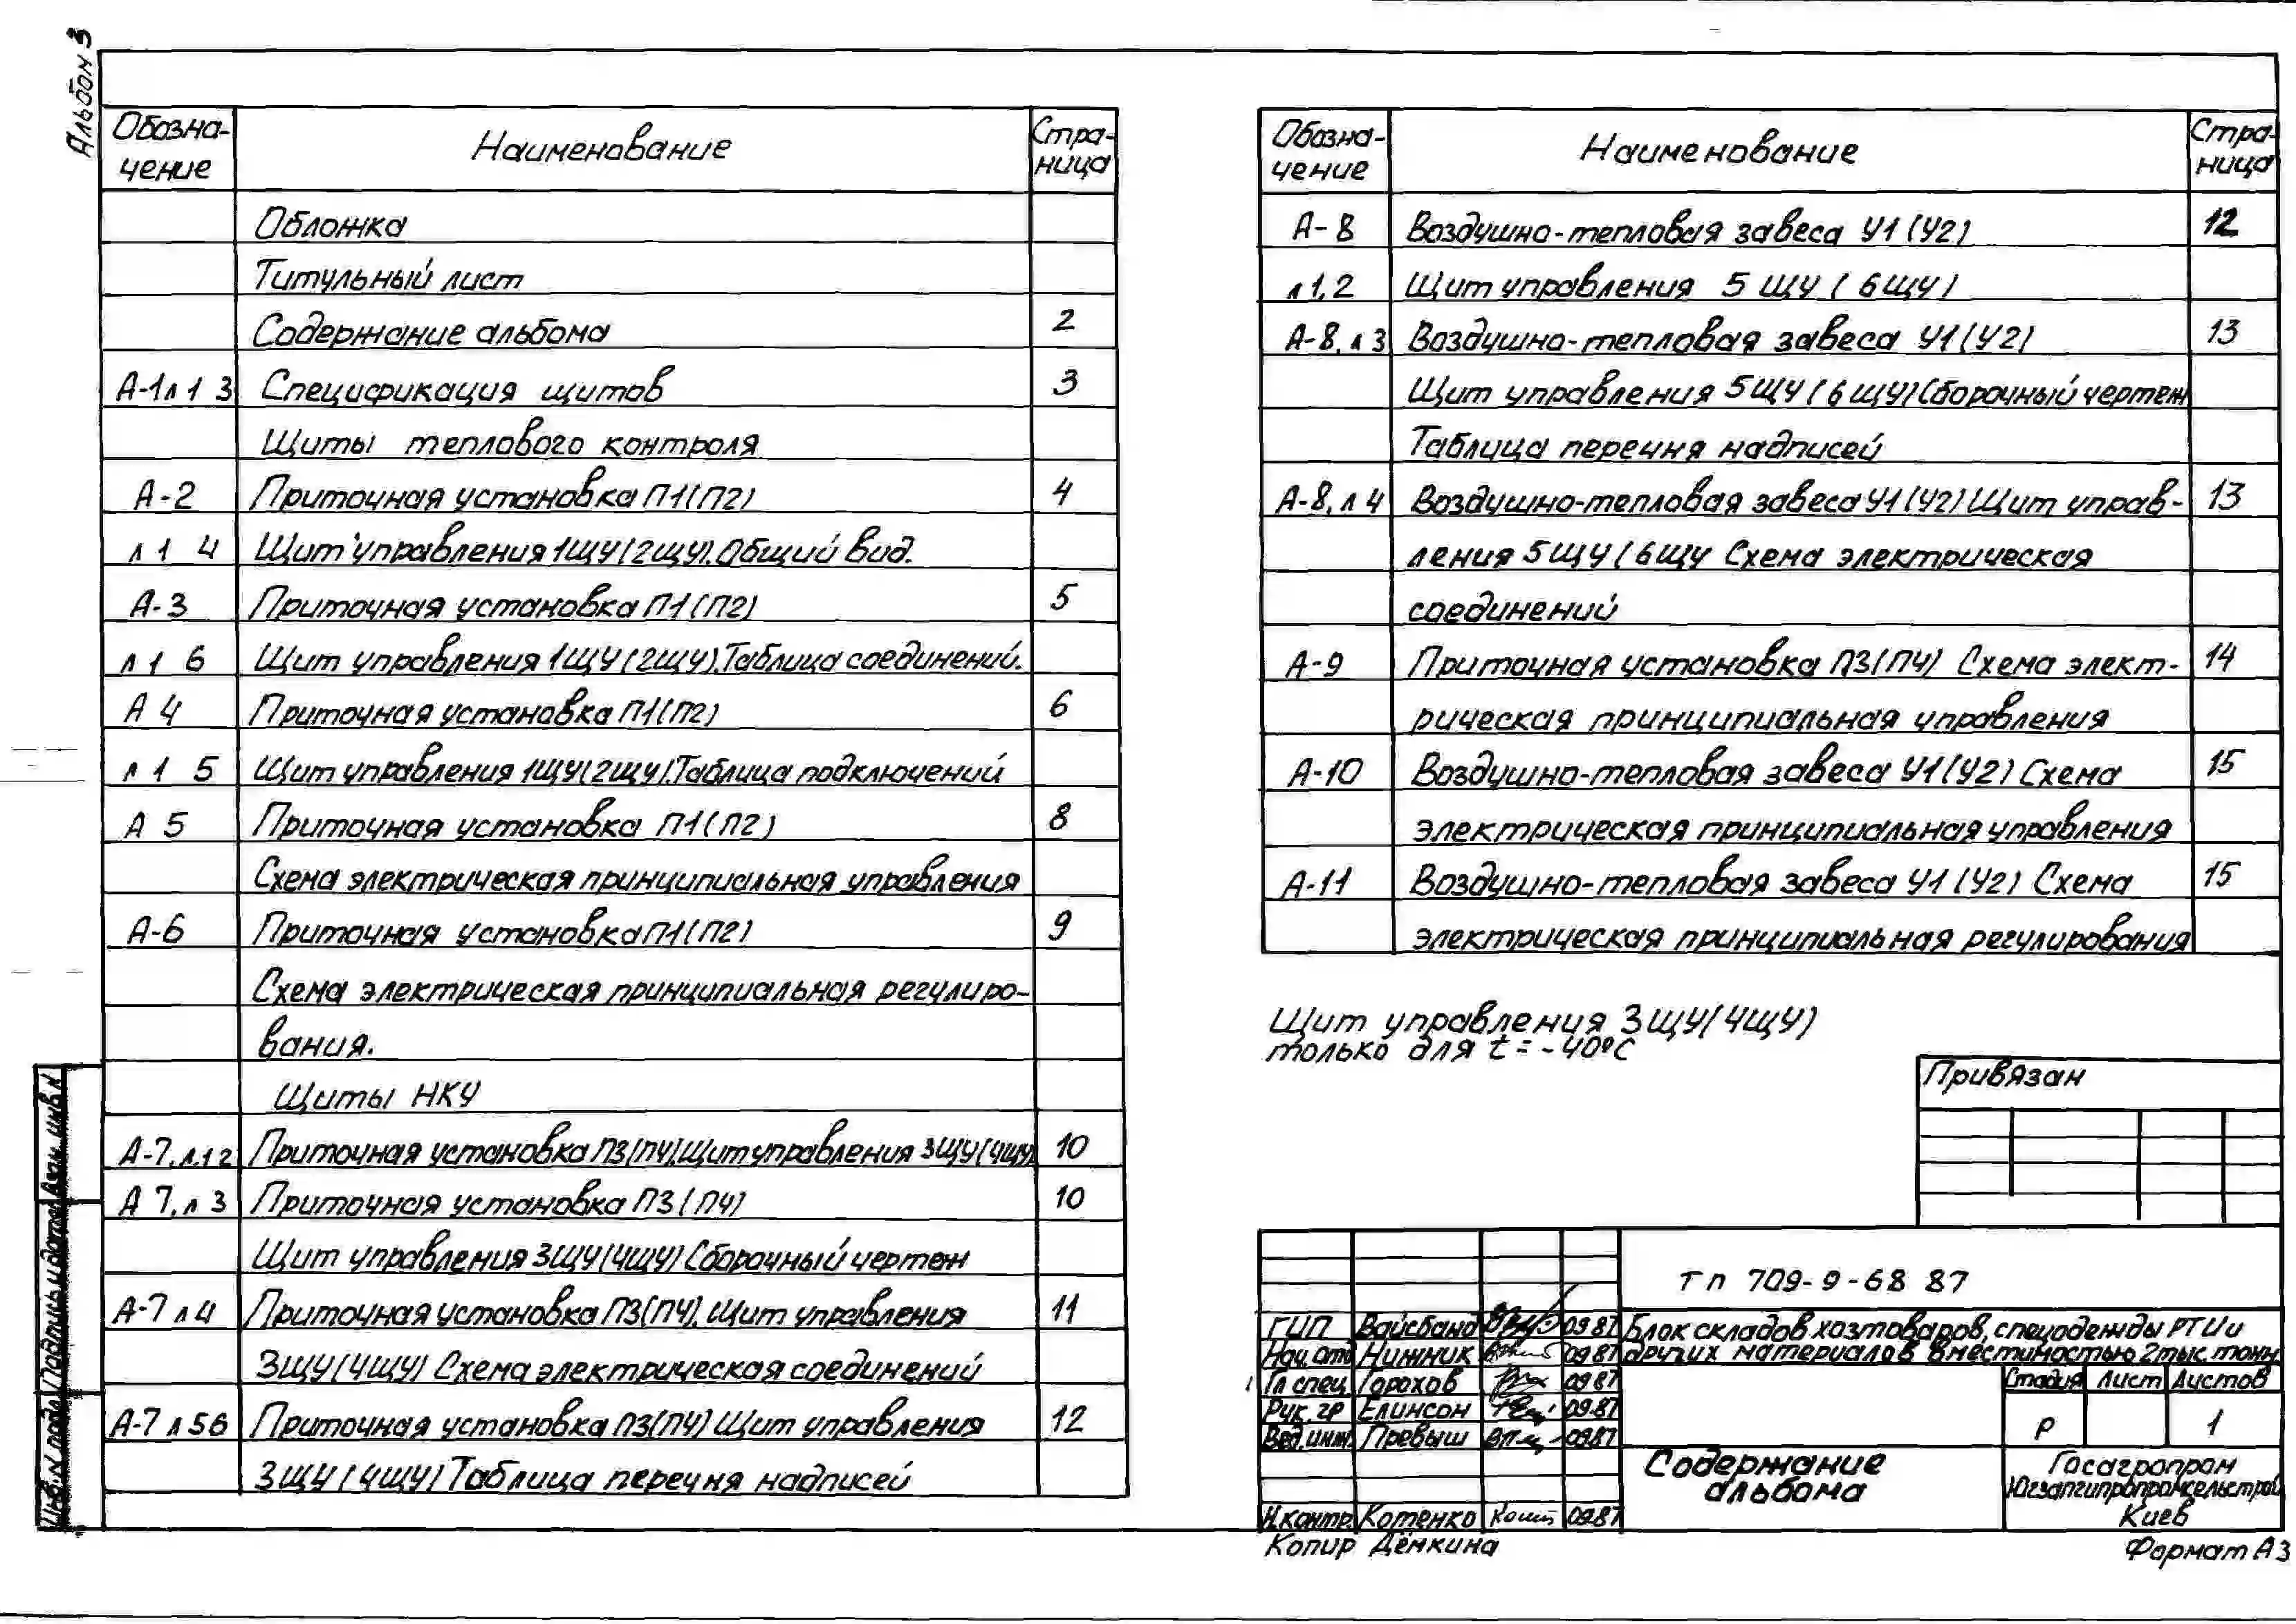 Альбом 3
Обозна-
чение
Наименование
Стра-
ница
Обложка
Титульный лист
Содержание альбома 2
А-1 л 1 3 Спецификация щитов 3
Щиты теплового контроля
А-2 Приточная установка П1(П2) 4
л 1 4 Щит управления 1ЩУ(2ЩУ). Общий вид.
А-3 Приточная установка П1(П2) 5
л 1 6 Щит управления 1ЩУ(2ЩУ). Таблица соединений.
А 4 Приточная установка П1(П2) 6
л 1 5 Щит управления 1ЩУ(2ЩУ). Таблица подключений
А 5 Приточная установка П1(П2) 8
Схема электрическая принципиальная управления
А-6 Приточная установка П1(П2) 9
Схема электрическая принципиальная регулиро-
вания.
Щиты НКУ
А-7, л.1 2 Приточная установка П3(П4). Щит управления 3ЩУ(4ЩУ) 10
А 7, л 3 Приточная установка П3(П4) 10
Щит управления 3ЩУ(4ЩУ) Сборочный чертеж
А-7 л 4 Приточная установка П3(П4). Щит управления 11
3ЩУ(4ЩУ) Схема электрическая соединений
А-7 л 5 6 Приточная установка П3(П4) Щит управления 12
3ЩУ(4ЩУ) Таблица перечня надписей
Обозна-
чение
Наименование
Стра-
ница
А-8 Воздушно-тепловая завеса У1(У2) 12
л 1,2 Щит управления 5 ЩУ (6ЩУ)
А-8, л 3 Воздушно-тепловая завеса У1(У2) 13
Щит управления 5ЩУ(6ЩУ) Сборочный чертеж
Таблица перечня надписей
А-8, л 4 Воздушно-тепловая завеса У1(У2) Щит управ- 13
ления 5ЩУ(6ЩУ Схема электрическая
соединений
А-9 Приточная установка П3(П4) Схема элект- 14
рическая принципиальная управления
А-10 Воздушно-тепловая завеса У1(У2) Схема 15
электрическая принципиальная управления
А-11 Воздушно-тепловая завеса У1(У2) Схема 15
электрическая принципиальная регулирования
Щит управления 3ЩУ(4ЩУ)
только для t = -40°С
Привязан
Т П 709-9-68 87
ГИП Вайсбанд 09 87
Нач. отд Нижник 09 87
Гл спец Горохов 09 87
Рук. гр Елинсон 09.87
Вед. инж. Превыш 09 87
Н.контр. Котенко 09 87
Блок складов хозтоваров, спецодежды РТИ и
других материалов вместимостью 2 тыс. тонн
Стадия Лист Листов
Р 1
Содержание
альбома
Госагропром
Югзапгипропромсельстрой
Киев
Копир Дёмкина
Формат А3
Инв. N подл. Подпись и дата Взам. инв. N